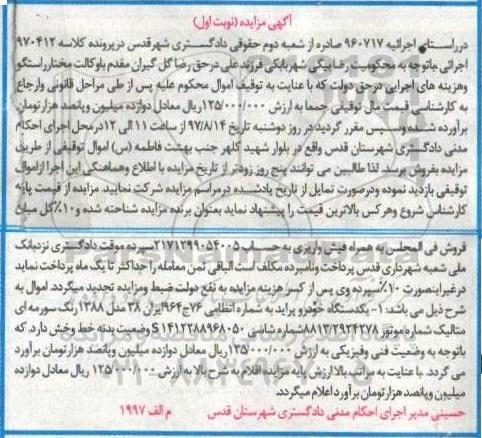 آگهی مزایده (نوبت اول)
در راستای اجرائیه ۹۶۰۷۱۷ صادره از شعبه دوم حقوقی دادگستری شهرقدس در پرونده کلاسه ۹۷۰۴۱۲
اجرائی باتوجه به محکومیت رضا بیگی شهربابکی فرزند علی در حق رضا گل گیران مقدم با وکالت مختار راستگو
وهزینه های اجرایی در حق دولت که با عنایت به توقیف اموال محکوم علیه پس از طی مراحل قانونی وارجاع
به کارشناسی قیمت مال توقیفی جمعا به ارزش ۱۲۵/۰۰۰/۰۰۰ریال معادل دوازده میلیون وپانصد هزار تومان
برآورده شده وسپس مقرر گردید در روز دوشنبه تاریخ ۹۷/۸/۱۴ از ساعت ۱۱ الی ۱۲در محل اجرای احکام
مدنی دادگستری شهرستان قدس واقع در بلوار شهید کلهر جنب بهشت فاطمه (س) اموال توقیفی از طریق
مزایده بفروش برسد. لذا طالبین می توانند پنج روز زودتر از تاریخ مزایده با اطلاع وهماهنگی این اجرا از اموال
توقیفی بازدید نموده ودر صورت تمایل از تاریخ یادشده در مراسم مزایده شرکت نمایید. مزایده از قیمت پایه
کارشناس شروع وهرکس بالاترین قیمت را پیشنهاد نماید بعنوان برنده مزایده شناخته شده و۱۰٪کل مبلغ
فروش فی المجلس به همراه فیش واریزی به حساب ۲۱۷۱۲۹۹۰۵۴۰۰۵سپرده موقت دادگستری نزد بانک
ملی شعبه شهرداری قدس پرداخت ونامبرده مکلف است الباقی ثمن معامله را حداکثر تا یک ماه پرداخت نماید
در غیر اینصورت ۱۰٪سپرده وی پس از کسر هزینه مزایده به نفع دولت ضبط ومزایده تجدید میگردد. اموال به
شرح ذیل می باشد: ۱- یکدستگاه خودرو پراید به شماره انتظامی ۷۶ج۹۶۴ایران ۳۸ مدل ۱۳۸۸رنگ سورمه ای
متالیک شماره موتور ۸۸۱۳/۲۹۲۴۲۷۸شماره شاسی S۱۴۱۲۲۸۸۹۶۸۰۵۰وضعیت بدنه خط وخش دارد. که
باتوجه به وضعیت فنی وفیزیکی به ارزش ۱۲۵/۰۰۰/۰۰۰ریال معادل دوازده میلیون وپانصد هزار تومان برآورد
می گردد. با عنایت به مراتب بالا ارزش پایه مزایده اقلام به شرح بالا به ارزش ۱۲۵/۰۰۰/۰۰۰ریال معادل دوازده
میلیون وپانصد هزار تومان برآورد اعلام میگردد.
حسینی مدیر اجرای احکام مدنی دادگستری شهرستان قدس م الف ۱۹۹۷